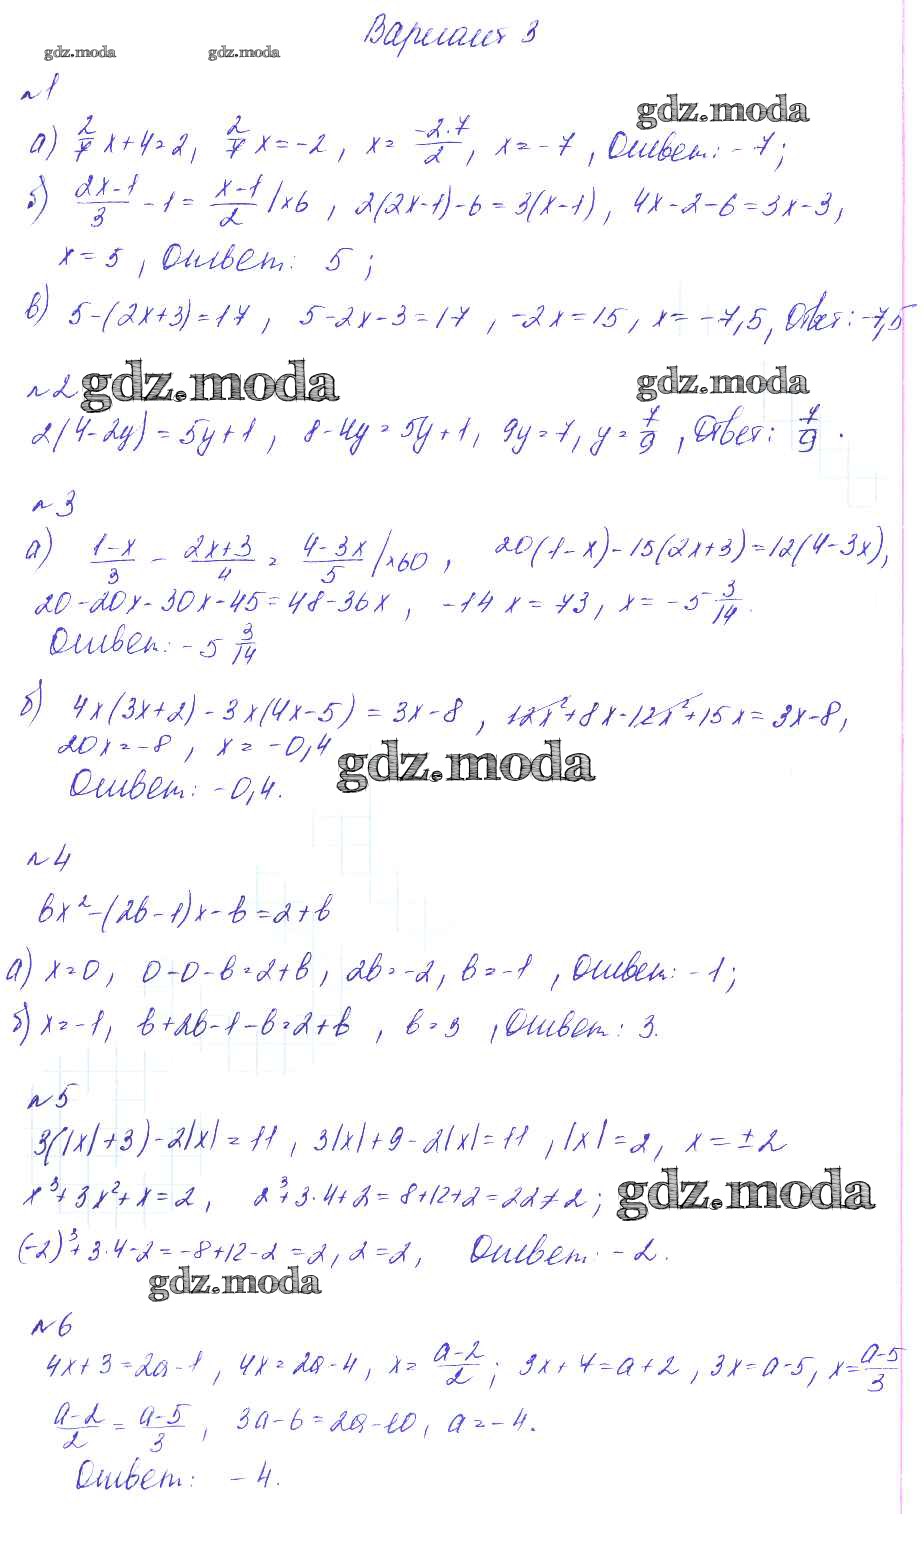 Вариант 3
gdz.moda gdz.moda
№1
gdz.moda
а) 2/7 x+4=2, 2/7 x=-2, x= -2·7/2, x=-7, Ответ: -7;
б) 2x-1/3 -1= x-1/2 |×6, 2(2x-1)-6=3(x-1), 4x-2-6=3x-3,
x=5, Ответ: 5;
в) 5-(2x+3)=17, 5-2x-3=17, -2x=15, x=-7,5, Ответ: -7,5
№2 gdz.moda gdz.moda
2(4-2y)=5y+1, 8-4y=5y+1, 9y=7, y=7/9, Ответ: 7/9.
№3
а) 1-x/3 - 2x+3/4 = 4-3x/5 |×60, 20(1-x)-15(2x+3)=12(4-3x),
20-20x-30x-45=48-36x, -14x=73, x=-5 3/14.
Ответ: -5 3/14
б) 4x(3x+2)-3x(4x-5)=3x-8, 12x²+8x-12x²+15x=3x-8,
20x=-8, x=-0,4
gdz.moda
Ответ: -0,4.
№4
bx²-(2b-1)x-b=2+b
а) x=0, 0-0-b=2+b, 2b=-2, b=-1, Ответ: -1;
б) x=-1, b+2b-1-b=2+b, b=3, Ответ: 3.
№5
3(|x|+3)-2|x|=11, 3|x|+9-2|x|=11, |x|=2, x=±2
x³+3x²+x=2, 2³+3·4+2=8+12+2=22≠2; gdz.moda
(-2)³+3·4-2=-8+12-2=2, 2=2, Ответ: -2.
gdz.moda
№6
4x+3=2a-1, 4x=2a-4, x= a-2/2; 3x+7=a+2, 3x=a-5, x= a-5/3
a-2/2 = a-5/3, 3a-6=2a-10, a=-4.
Ответ: -4.